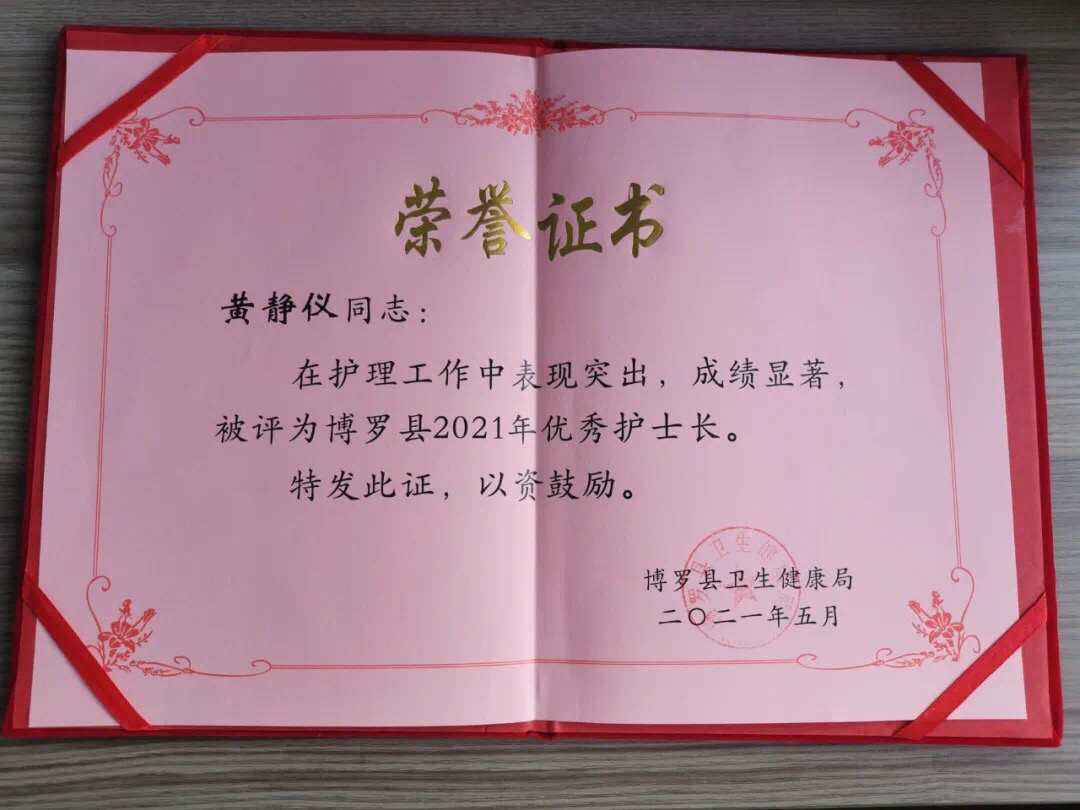 荣誉证书
黄静仪同志：
在护理工作中表现突出，成绩显著，
被评为博罗县2021年优秀护士长。
特发此证，以资鼓励。
博罗县卫生健康局
二〇二一年五月